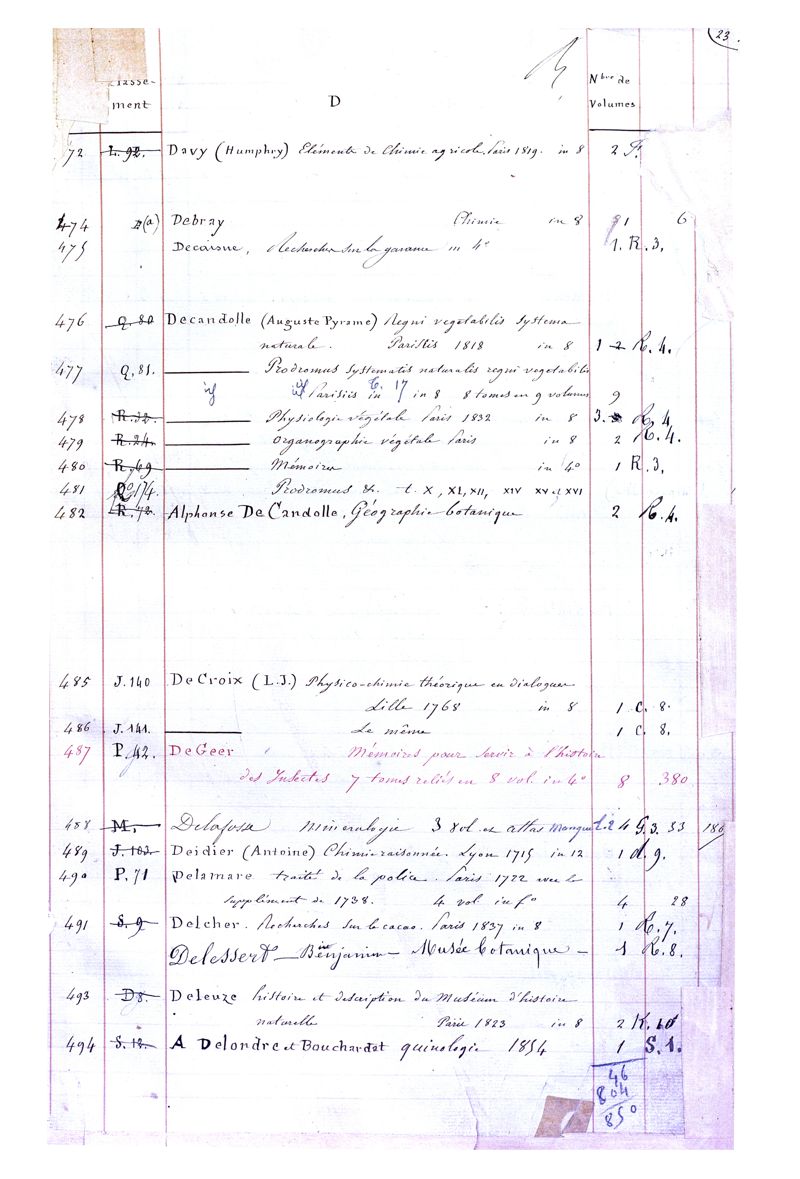 23
Classe-
ment
D
Nbre de
Volumes
72 L. 92. Davy (Humphry) Eléments de Chimie agricole. Paris 1819. in 8 2 F.
474 (a) Debray Chimie in 8 1 6
475 Decaisne, Recherches sur la garance in 4° 1. R. 3.
476 Q. 80 Decandolle (Auguste Pyrame) Regni vegetabilis systema
naturale. Parisiis 1818 in 8 1 2 R. 4.
477 Q. 81. Prodromus systematis naturalis regni vegetabilis
Parisiis in 8 8 tomes en 9 volumes 9
478 R. 32. Physiologie végétale Paris 1832 in 8 3. R. 4
479 R. 24. Organographie végétale Paris in 8 2 R. 4.
480 R. 69 Mémoires in 4° 1 R. 3.
481 174. Prodromus &. t. X, XI, XII, XIV XV et XVI
482 R. 72. Alphonse De Candolle, Géographie botanique 2 R. 4.
485 J. 140 De Croix (L.J.) Physico-chimie théorique en dialogues
Lille 1768 in 8 1 C. 8.
486 J. 141. Le même 1 C. 8.
487 P. 42. De Geer Mémoires pour servir à l'histoire
des Insectes 7 tomes reliés en 8 vol. in 4° 8 380
488 M. Delafosse Mineralogie 3 vol et atlas Manque t. 2 4 G. 3. 33 180
489 J. 102. Deidier (Antoine) Chimie raisonnée. Lyon 1715 in 12 1 d. 9.
490 P. 71 Delamare traité de la police. Paris 1722 avec le
supplément de 1738. 4 vol in f° 4 28
491 S. 9 Delcher. Recherches sur le cacao. Paris 1837 in 8 1 R. 7.
Delessert — Benjamin — Musée botanique — 1 R. 8.
493 D 8. Deleuze histoire et description du Muséum d'histoire
naturelle Paris 1823 in 8 2 K. 10
494 S. 12. A Delondre et Bouchardat quinologie 1854 1 S. 1.
46
804
850